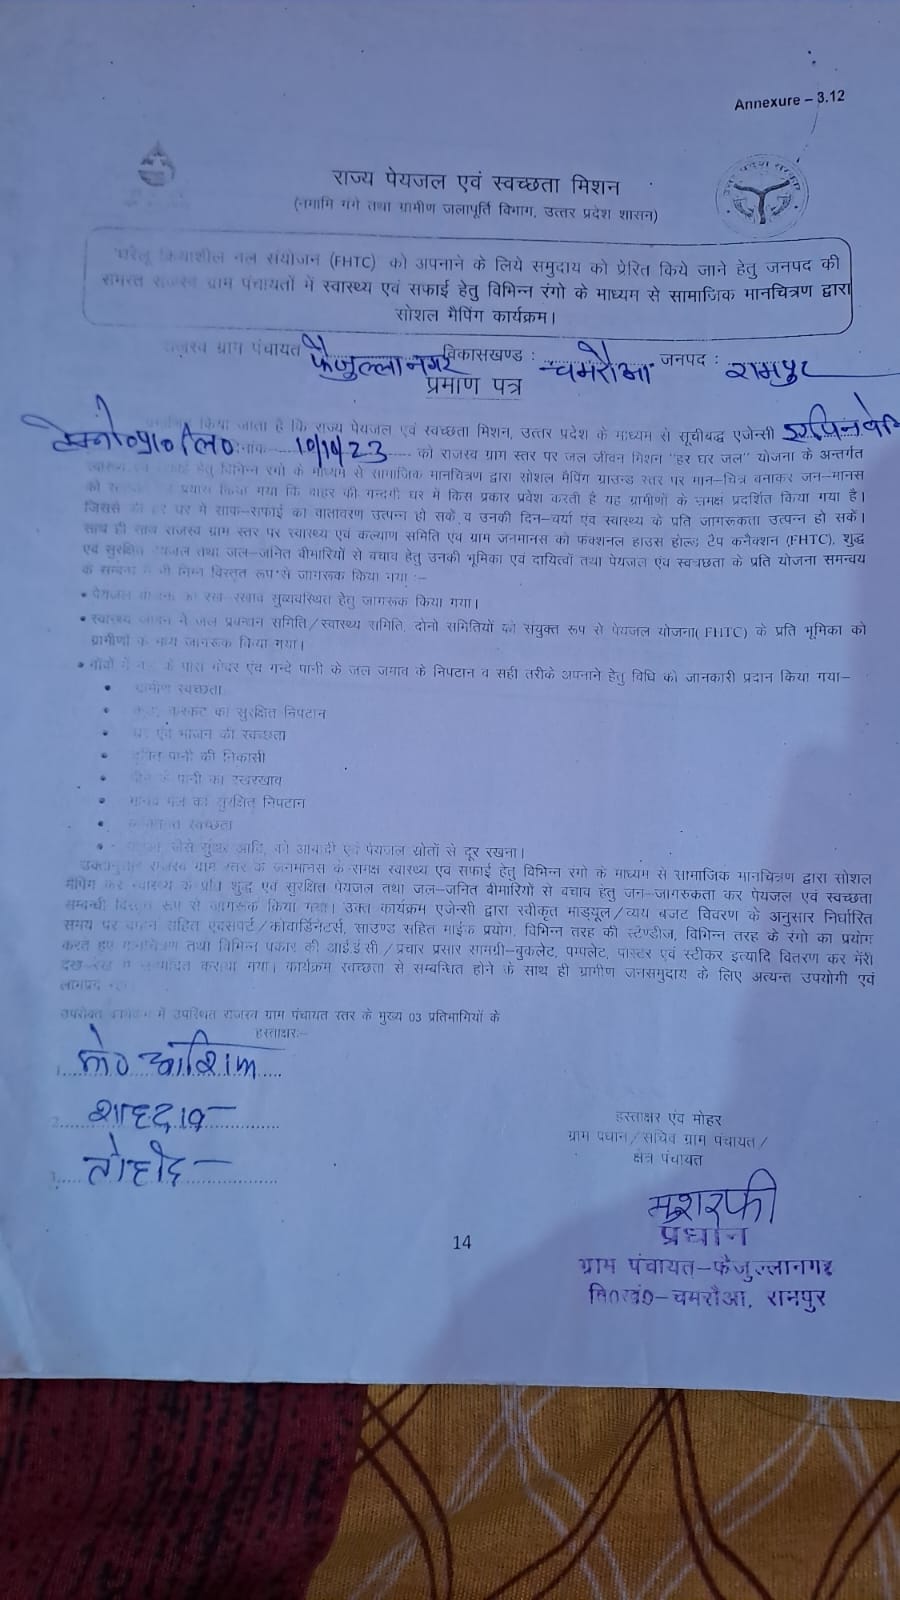 Annexure – 3.12
राज्य पेयजल एवं स्वच्छता मिशन
(नमामि गंगे तथा ग्रामीण जलापूर्ति विभाग, उत्तर प्रदेश शासन)
उत्तर प्रदेश सरकार
घरेलू क्रियाशील नल संयोजन (FHTC) को अपनाने के लिये समुदाय को प्रेरित किये जाने हेतु जनपद की
समस्त राजस्व ग्राम पंचायतों में स्वास्थ्य एवं सफाई हेतु विभिन्न रंगो के माध्यम से सामाजिक मानचित्रण द्वारा
सोशल मैपिंग कार्यक्रम।
राजस्व ग्राम पंचायत फैजुल्लानगर विकासखण्ड : चमरौआ जनपद : रामपुर
प्रमाण पत्र
किया जाता है कि राज्य पेयजल एवं स्वच्छता मिशन, उत्तर प्रदेश के माध्यम से सूचीबद्ध एजेन्सी
10/10/23 को राजस्व ग्राम स्तर पर जल जीवन मिशन "हर घर जल" योजना के अन्तर्गत
हेतु विभिन्न रंगो के माध्यम से सामाजिक मानचित्रण द्वारा सोशल मैपिंग ग्राउन्ड स्तर पर मान–चित्र बनाकर जन–मानस
प्रयास किया गया कि बाहर की गन्दगी घर में किस प्रकार प्रवेश करती है यह ग्रामीणों के समक्ष प्रदर्शित किया गया है।
जिससे ही हर घर में साफ–सफाई का वातावरण उत्पन्न हो सकें व उनकी दिन–चर्या एंव स्वास्थ्य के प्रति जागरूकता उत्पन्न हो सकें।
साथ ही साथ राजस्व ग्राम स्तर पर स्वास्थ्य एवं कल्याण समिति एंव ग्राम जनमानस को फंक्शनल हाउस होल्ड टैप कनैक्शन (FHTC), शुद्ध
एवं सुरक्षित पेयजल तथा जल–जनित बीमारियों से बचाव हेतु उनकी भूमिका एवं दायित्वों तथा पेयजल एंव स्वच्छता के प्रति योजना समन्वय
के सम्बन्ध में भी निम्न विस्तृत रूप से जागरूक किया गया :–
• पेयजल योजना का रख–रखाव सुव्यवस्थित हेतु जागरूक किया गया।
• में जल प्रबन्धन समिति/स्वास्थ्य समिति, दोनो समितियों को संयुक्त रूप से पेयजल योजना( FHTC) के प्रति भूमिका को
ग्रामीणों के मध्य जागरूक किया गया।
• गाँवों में के पास गोबर एंव गन्दे पानी के जल जमाव के निपटान व सही तरीके अपनाने हेतु विधि की जानकारी प्रदान किया गया–
• ग्रामीण स्वच्छता
• कूडा करकट का सुरक्षित निपटान
• घर एंव भोजन की स्वच्छता
• दूषित पानी की निकासी
• पीने के पानी का रखरखाव
• मानव मल का सुरक्षित निपटान
• व्यक्तिगत स्वच्छता
• जैसे सुंअर आदि, को आबादी एवं पेयजल स्रोतों से दूर रखना।
राजस्व ग्राम स्तर के जनमानस के समक्ष स्वास्थ्य एवं सफाई हेतु विभिन्न रंगो के माध्यम से सामाजिक मानचित्रण द्वारा सोशल
मैपिंग कर स्वास्थ्य के प्रति शुद्ध एवं सुरक्षित पेयजल तथा जल–जनित बीमारियों से बचाव हेतु जन–जागरुकता कर पेयजल एवं स्वच्छता
सम्बन्धी विस्तृत रूप से जागरूक किया गया। उक्त कार्यक्रम एजेन्सी द्वारा स्वीकृत माड्यूल/व्यय बजट विवरण के अनुसार निर्धारित
समय पर वाहन सहित एक्सपर्ट/कोवार्डिनेटर्स, साउण्ड सहित माईक प्रयोग, विभिन्न तरह की स्टैण्डीज, विभिन्न तरह के रंगो का प्रयोग
करते हुए मानचित्रण तथा विभिन्न प्रकार की आई.ई.सी./प्रचार प्रसार सामग्री–बुकलेट, पम्पलेट, पोस्टर एवं स्टीकर इत्यादि वितरण कर मेरी
देख–रेख में सम्पादित कराया गया। कार्यक्रम स्वच्छता से सम्बन्धित होने के साथ ही ग्रामीण जनसमुदाय के लिए अत्यन्त उपयोगी एवं
लाभप्रद
उपरोक्त कार्यक्रम में उपस्थित राजस्व ग्राम पंचायत स्तर के मुख्य 03 प्रतिभागियों के
हस्ताक्षरः–
1. मो० आशिम
2. शाहदाब
3. तोहीद
हस्ताक्षर एंव मोहर
ग्राम प्रधान/सचिव ग्राम पंचायत/
क्षेत्र पंचायत
मशरफी
प्रधान
ग्राम पंचायत–फैजुल्लानगर
वि०खं०–चमरौआ, रामपुर
14